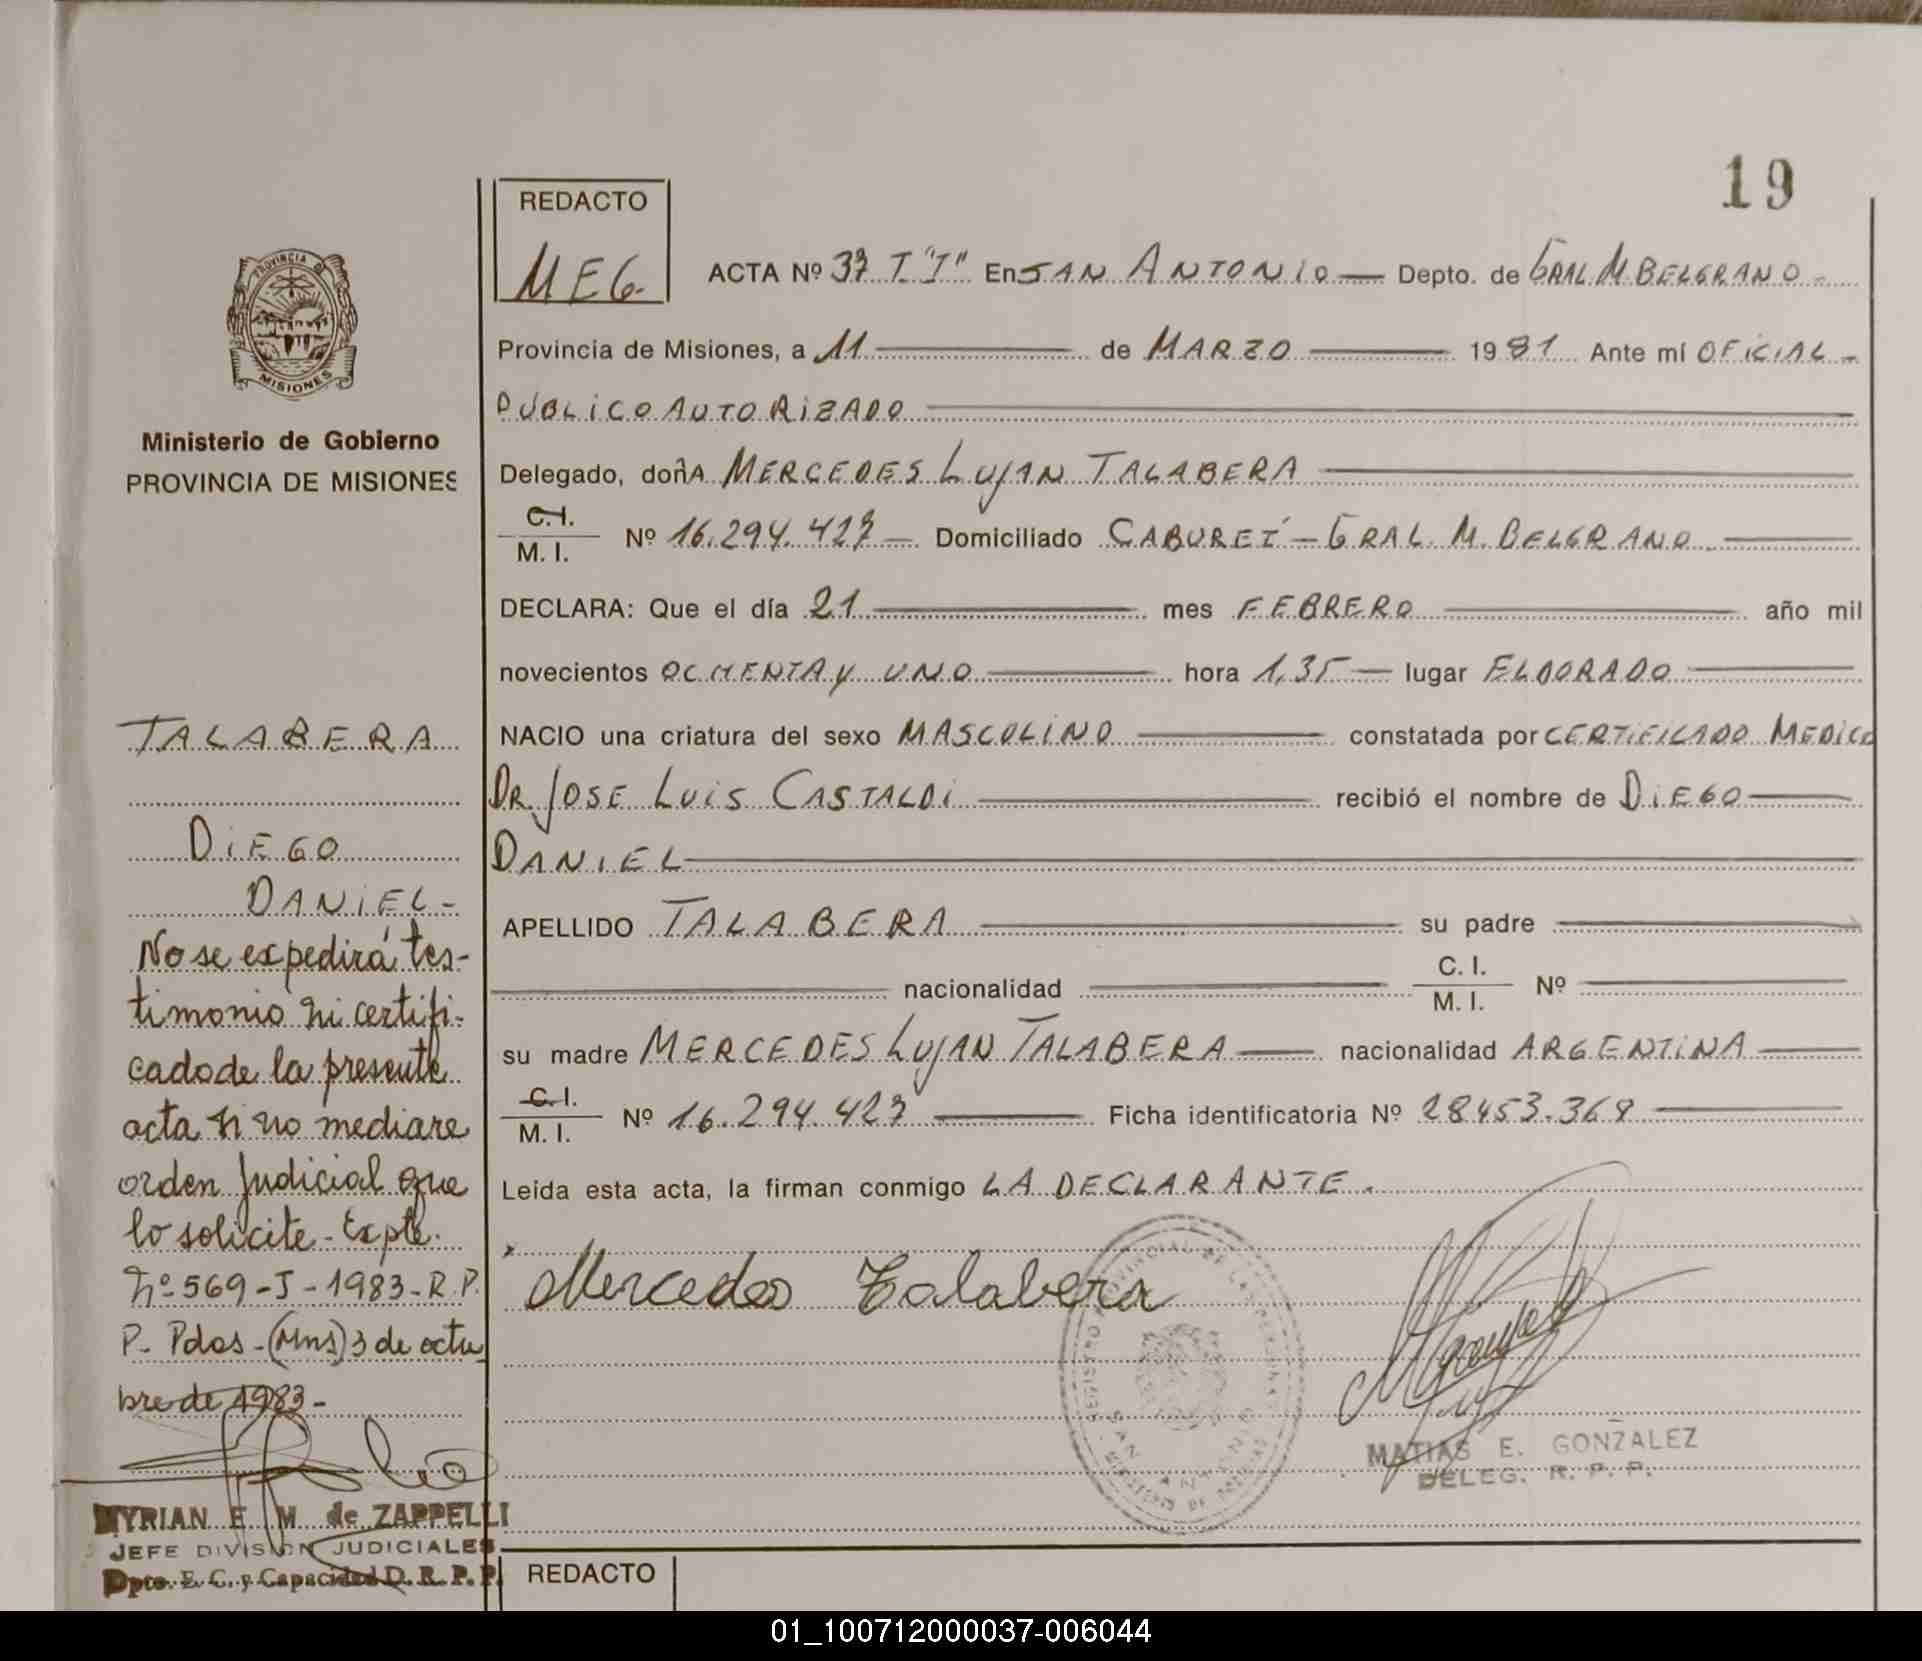 19
REDACTO
MEG.
ACTA Nº 37 T "I" En SAN ANTONIO — Depto. de GRAL M. BELGRANO.-
Provincia de Misiones, a 11 — de MARZO — 1981 Ante mí OFICIAL -
PUBLICO AUTORIZADO
Delegado, doñA MERCEDES LUJAN TALABERA
C.I.
M. I. Nº 16.294.427 — Domiciliado CABUREÍ - GRAL. M. BELGRANO.
DECLARA: Que el día 21 — mes FEBRERO — año mil
novecientos OCHENTA y UNO — hora 1,35 — lugar ELDORADO
NACIO una criatura del sexo MASCULINO — constatada por CERTIFICADO MEDICO
DR. JOSE LUIS CASTALDI — recibió el nombre de DIEGO
DANIEL
APELLIDO TALABERA — su padre —
— nacionalidad — C. I.
M. I. Nº —
su madre MERCEDES LUJAN TALABERA — nacionalidad ARGENTINA
C. I.
M. I. Nº 16.294.427 — Ficha identificatoria Nº 28453.368
Leída esta acta, la firman conmigo LA DECLARANTE.
Mercedes Talabera
REGISTRO PROVINCIAL DE LAS PERSONAS
SAN ANTONIO
MATIAS E. GONZALEZ
DELEG. R. P. P.
REDACTO
PROVINCIA DE
MISIONES
Ministerio de Gobierno
PROVINCIA DE MISIONES
TALABERA
DIEGO
DANIEL-
No se expedirá tes-
timonio ni certifi-
cado de la presente
acta si no mediare
orden Judicial que
lo solicite - Expte.
Nº 569-J-1983-R.P.
P. Pdas - (Mns) 3 de octu
bre de 1983-
MYRIAN E. M. de ZAPPELLI
JEFE DIVISION JUDICIALES
Dpto. E. C. y Capacidad D. R. P. P.
01_100712000037-006044